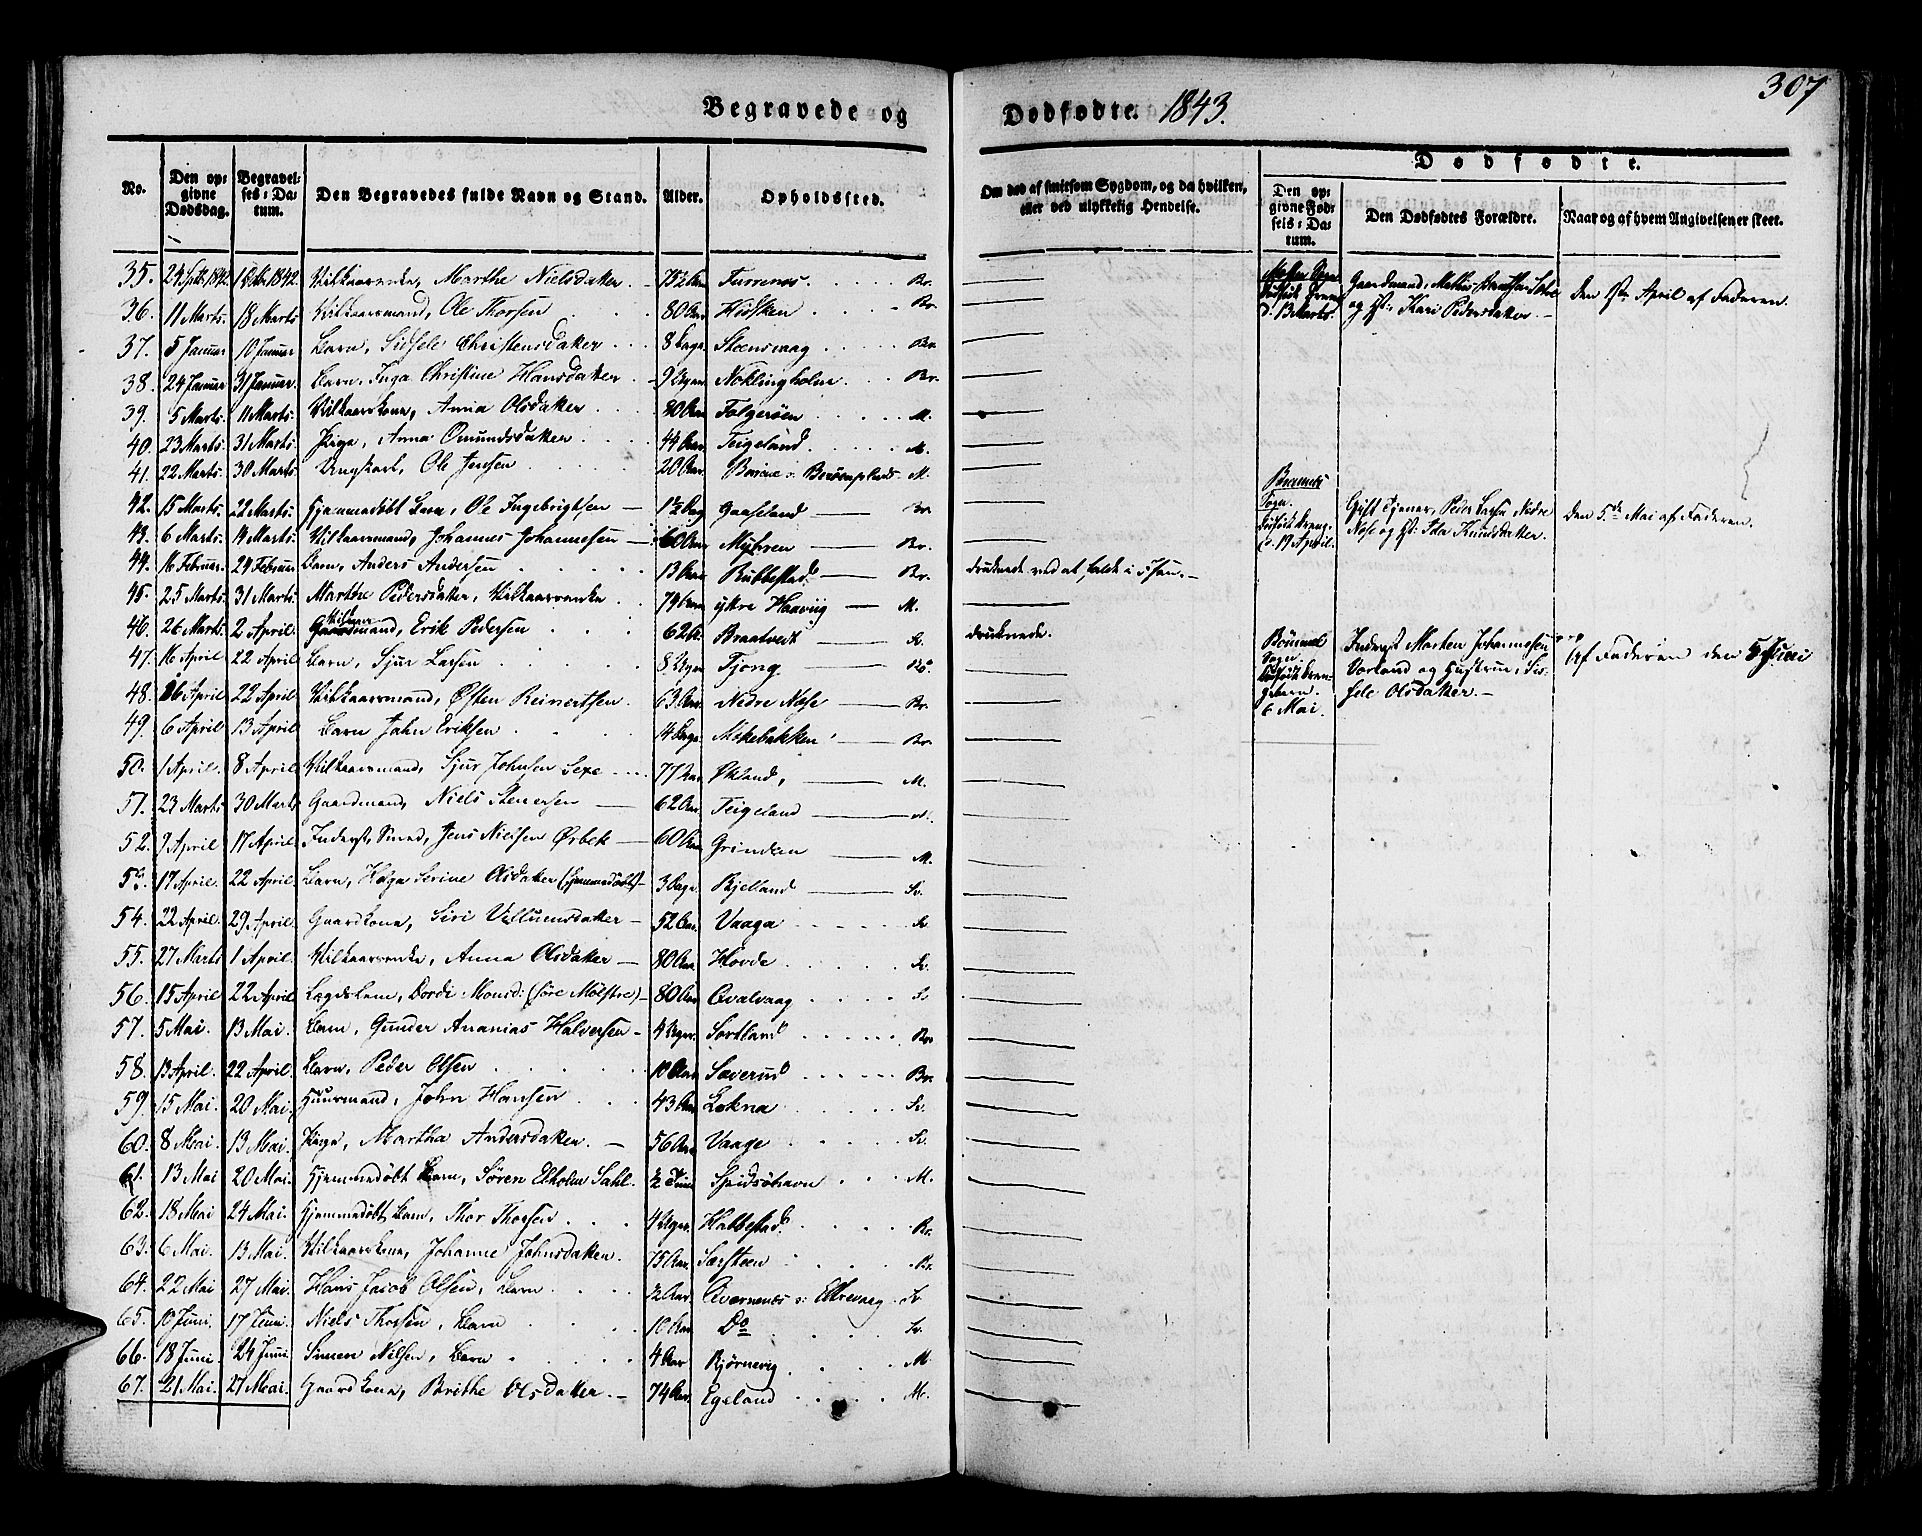 307
Begravede og Dødfødte. 1843.
Dødfødte.
No. Den opgivne Dødsdag. Begravelses-Datum. Den Begravedes fulde Navn og Stand. Alder. Opholdssted. Om død af smitsom Sygdom, og da hvilken, eller ved ulykkelig Hendelse. Den opgivne Fødsels-Datum. Den Dødfødtes Forældre. Naar og af hvem Angivelsen er skeet.
35. 24 Sptb. 1842. 1842. Vilkaarsenke, Marthe Nielsdatter 75½ Aar Br.
36. 11 Marts. 18 Marts Vilkaarsmand, Ole Thorsen 80 Aar Hidsken Br.
37. 5 Januar 10 Januar Barn, Sidsele Christensdatter 8 Dage. Steensvaag Br.
38. 24 Januar 31 Januar. Barn, Inga Christine Hansdatter 9 Uger Nøklingholm Br.
39. 5 Marts. 11 Marts. Vilkaarskona, Anna Olsdatter 80 Aar Folgerøen M.
40. 23 Marts. 31 Marts. Pige, Anna Omundsdatter 44 Aar Teigeland M.
41. 22 Marts. 30 Marts. Ungkarl, Ole Jensen 20 Aar M.
42. 15 Marts. 22 Marts. Hjemmedøbt Barn, Ole Ingebrigtsen 1½ Dag Gaaseland Br.
43. 6 Marts. 14 Marts. Vilkaarsmand, Johannes Johannesen 60 Aar Myhren Br.
44. 16 Februar. 24 Februar Barn, Anders Andersen 13 Aar Bubbestad Br. druknede ved at falde i Søen.
45. 25 Marts 31 Marts. Marthe Pedersdatter, Vilkaarsenke 79 Aar ytre Haaviig M.
46. 26 Marts. 2 April. Gaardmand, Erik Pedersen 62 A. Braatvedt Sv. druknede.
47. 16 April 22 April Barn, Sjur Larsen 8 Uger Tjong. Br.
48. 16 April 22 April Vilkaarsmand, Østen Reinertsen 63 Aar. Nedre Næse Br.
49. 6 April 13 April Barn John Eriksen 14 Dage. Mækebakken Br.
50. 1 April. 8 April Vilkaarsmand, Sjur Johnsen Sexe 77 Aar Økland, M.
51. 23 Marts 30 Marts Gaardmand, Niels Stenersen 62 Aar Teigeland M.
52. 9 April 17 April Inderst, Smed, Jens Nielsen Ørbek 60 Aar Grindeen M.
53. 17 April. 22 April Barn, Helga Serine Olsdatter (hjemmedøbt) 3 Dage Bjelland Sv.
54. 22 April. 29 April. Gaardkona, Siri Villumsdatter 52 Aar. Vaaga Sv.
55. 27 Marts 1 April. Vilkaarsenke, Anna Olsdatter 80 Aar Hovde Sv.
56. 15 April 22 April Lægdslem, Dordi Monsd: (søre Mølstre) 80 Aar Qvalvaag Sv.
57. 5 Mai. 13 Mai. Barn, Gunder Ananias Halversen 4 Uger. Sortland Br.
58. 13 April. 22 April. Barn, Peder Olsen 10 Aar Sæverud Br.
59. 15 Mai. 20 Mai. Huusmand, John Hansen 43 Aar Lokna Sv.
60. 8 Mai 13 Mai. Pige, Martha Andersdatter. 56 Aar Vaage Sv.
61. 13 Mai 20 Mai. Hjemmedøbt Barn, Søren Elholm Sahl. ½ Time Spidsøhavn M.
62. 18 Mai 24 Mai. Hjemmedøbt Barn, Thor Thorsen 4 Uger. Habbestad Br.
63. 6 Mai. 13 Mai. Vilkaarskona, Johanne Johnsdatter. 75 Aar. Særsteen Br.
64. 22 Mai 27 Mai. Hans Jacob Olsen, Barn ½ Aar. Qvernenæs v: Eltrevaag Sv.
65. 10 Juni. 17 Juni. Niels Thorsen, Barn 10 Aar Do Sv.
66. 18 Juni 24 Juni Simen Nilsen, Barn 4 Aar Bjørnevig M.
67. 21 Mai. 27 Mai. Gaardkona, Brithe Olsdatter 74 Aar. Egeland M.
d. 13 Marts. Gaardmand, og H: Kari Pedersdatter. Den April af Faderen.
Bremnes Sogn. d. 19 April. Gift Tjener, Peder Larsen Nedre Næse og H: Ida Knudsdatter. Den 5te Mai af Faderen.
Bømmel Sogn. 6 Mai. Inderst Morten Johannessen Vorland og Hustrue, Sidsele Olsdatter. Af Faderen den 5 Juni